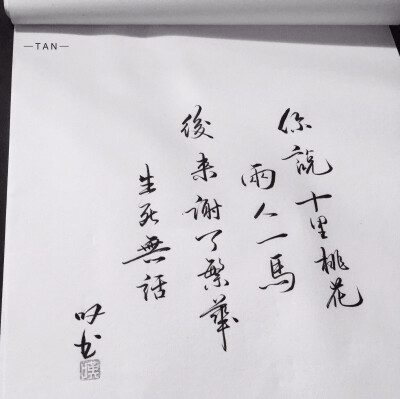 —TAN—
你説十里桃花
兩人一馬
後来謝了繁華
生死無話